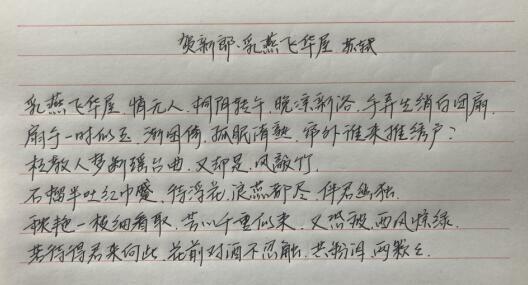 贺新郎·乳燕飞华屋 苏轼
乳燕飞华屋，悄无人，桐阴转午，晚凉新浴，手弄生绡白团扇，
扇手一时似玉，渐困倚，孤眠清熟，帘外谁来推绣户？
枉教人梦断瑶台曲，又却是，风敲竹，
石榴半吐红巾蹙，待浮花，浪蕊都尽，伴君幽独，
秾艳一枝细看取，芳心千重似束，又恐被，西风惊绿，
若待得君来向此，花前对酒不忍触，共粉泪，两簌簌